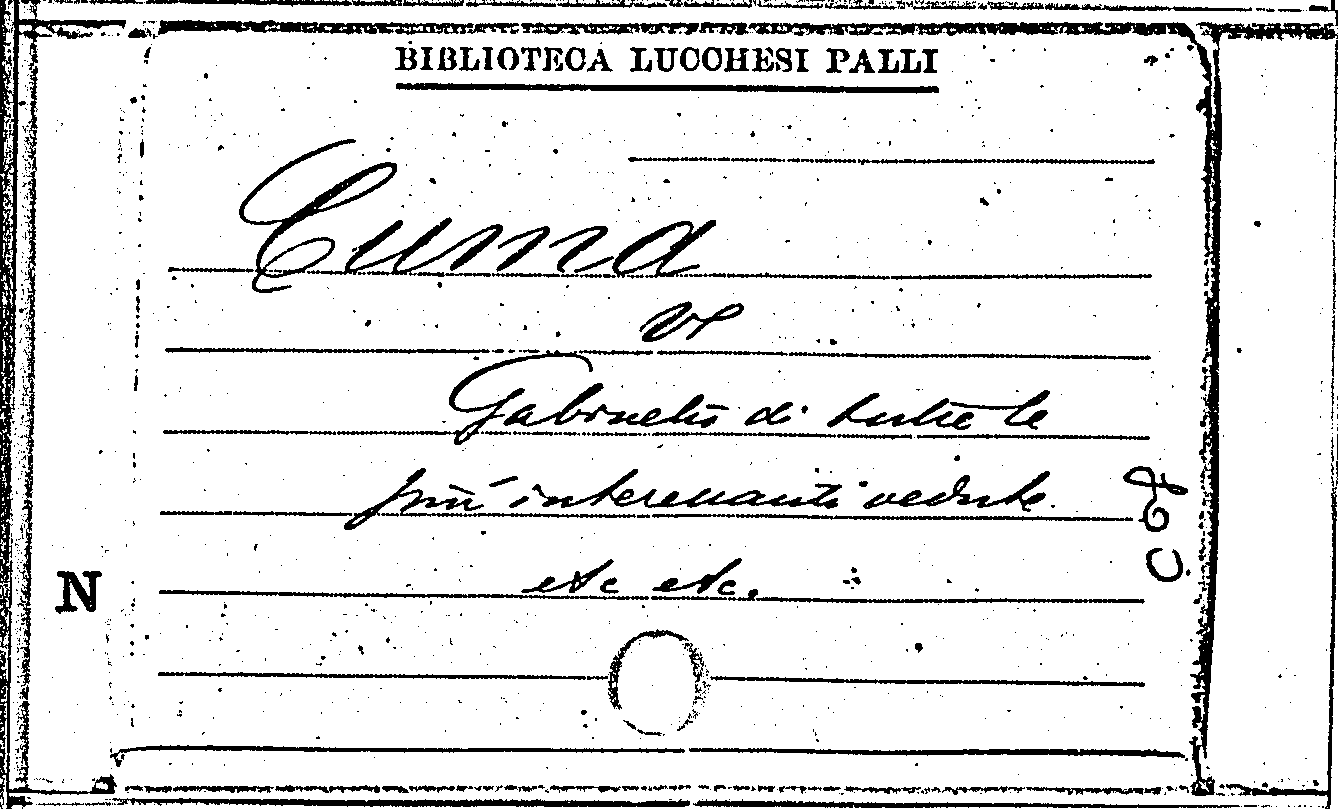 BIBLIOTECA LUCCHESI PALLI
Cuma
V
Gabinetto di tutte le
più interessanti vedute
etc etc.
N